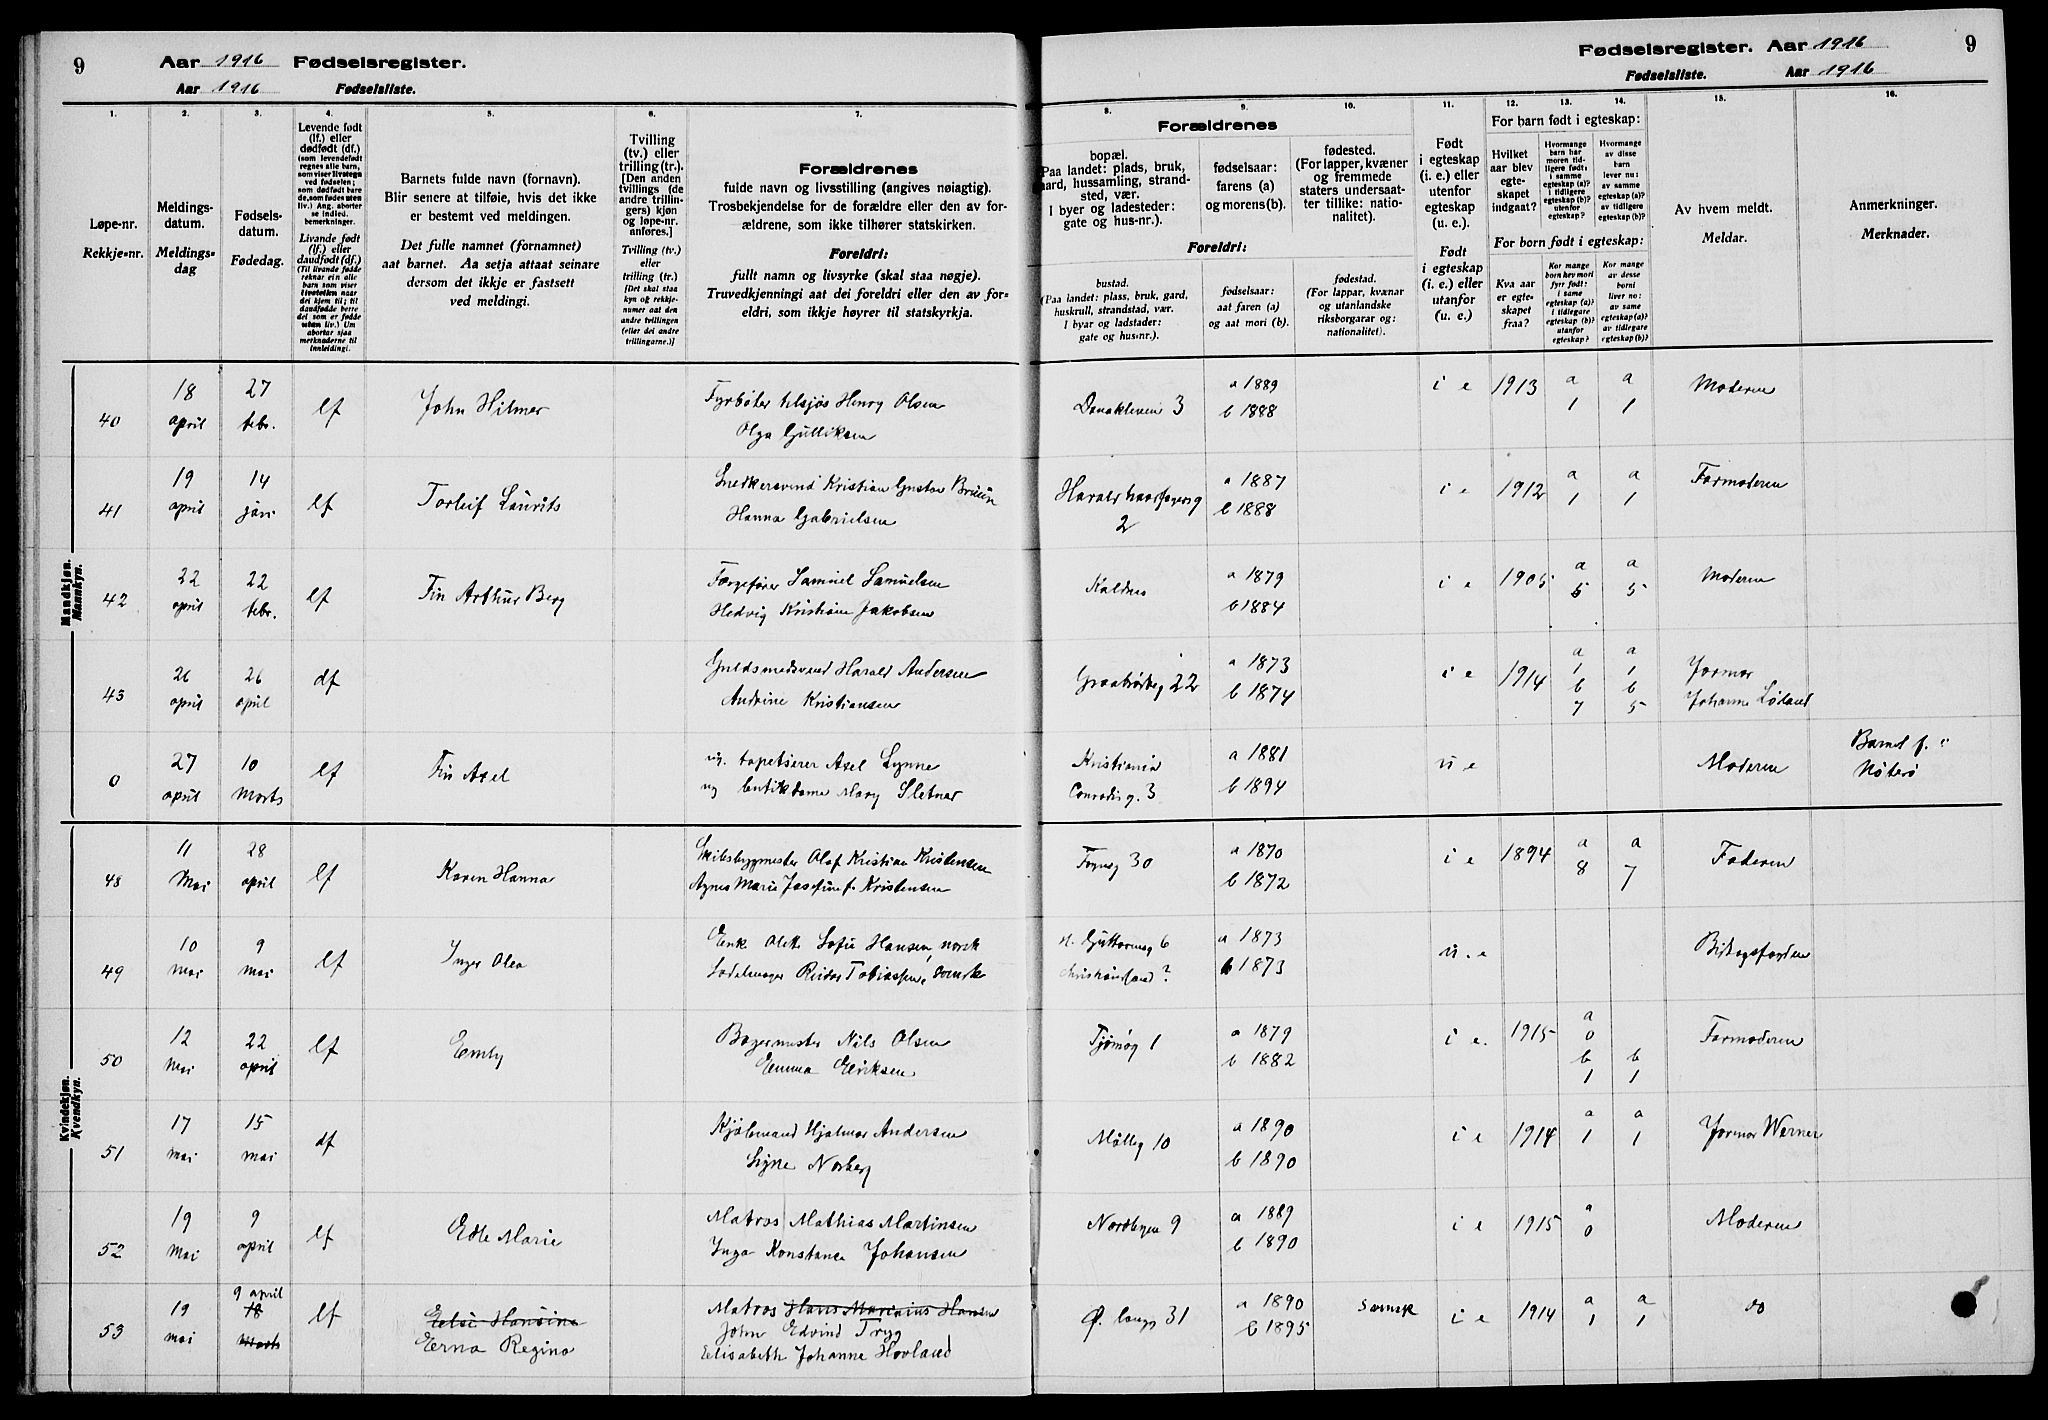 9 Aar 1916 Fødselsregister.
Aar 1916 Fødselsliste.
Fødselsregister. Aar 1916 9
Fødselsliste. Aar 1916
1.
2.
3.
4.
5.
6.
7.
8.
9.
10.
11.
12.
13.
14.
15.
16.
Løpe-nr.
Rekkje-nr.
Meldings-
datum.
Meldings-
dag
Fødsels-
datum.
Fødedag.
Levende født
(lf.) eller
dødfødt (df.)
(som levendefødt
regnes alle barn,
som viser livstegn
ved fødselen;
som dødfødt bare
de, som fødes uten
liv.) Ang. aborter
se indled.
bemerkninger.
Livande født
(lf.) eller
daudfødt (df.)
(Til livande fødde
reknar ein alle
barn som viser
livsteikn naar
dei kjem til; til
daudfødde berre
dei som er fødde
utan liv.) Um
abortar sjaa
merknaderne til
innleidingi.
Barnets fulde navn (fornavn).
Blir senere at tilføie, hvis det ikke
er bestemt ved meldingen.
Det fulle namnet (fornamnet)
aat barnet. Aa setja attaat seinare
dersom det ikkje er fastsett
ved meldingi.
Tvilling
(tv.) eller
trilling (tr.).
[Den anden
tvillings (de
andre trillin-
gers) kjøn
og løpe-nr.
anføres.]
Tvilling (tv.)
eller
trilling (tr.)
[Det skal staa
kyn og rekkje-
numer aat den
andre tvillingen
(eller dei andre
trillingarne.)]
Forældrenes
fulde navn og livsstilling (angives nøiagtig).
Trosbekjendelse for de forældre eller den av for-
ældrene, som ikke tilhører statskirken.
Foreldri:
fullt namn og livsyrke (skal staa nøgje).
Truvedkjenningi aat dei foreldri eller den av for-
eldri, som ikkje høyrer til statskyrkja.
Forældrenes
bopæl.
(Paa landet: plads, bruk,
gard, hussamling, strand-
sted, vær.
I byer og ladesteder:
gate og hus-nr.).
fødselsaar:
farens (a)
og morens (b).
fødested.
(For lapper, kvæner
og fremmede
staters undersaat-
ter tillike: natio-
nalitet).
Foreldri:
bustad.
(Paa landet: plass, bruk, gard,
huskrull, strandstad, vær.
I byar og ladstader:
gate og hus-nr.).
fødselsaar:
aat faren (a)
og aat mori (b).
fødestad.
(For lappar, kvænar
og utanlandske
riksborgarar og:
nationalitet).
Født
i egteskap
(i. e.) eller
utenfor
egteskap
(u. e.).
Født
i egteskap
(i. e.) eller
utanfor
(u. e.)
For barn født i egteskap:
Hvilket
aar blev
egte-
skapet
indgaat?
Hvormange
barn har
moren tid-
ligere født:
i samme
egteskap (a)?
i tidligere
egteskap (b)?
utenfor
egteskap?
Hvormange
av disse
barn
lever nu:
av samme
egteskap (a)?
av tidligere
egteskap (b)?
For born født i egteskap:
Kva aar
er egte-
skapet
fraa?
Kor mange
born hev mori
fyrr født:
i same
egteskap (a)?
i tidlegare
egteskap (b)?
utanfor
egteskap?
Kor mange
av desse
borni
liver no:
av same
egteskap (a)?
av tidlegare
egteskap (b)?
Av hvem meldt.
Meldar.
Anmerkninger.
Merknader.
Mandkjøn.
Mannkyn.
40 18 april 27 febr. lf John Hilmer Fyrbøter tilsjøs Henry Olsen a 1889 i e 1913 a 1 a 1 Moderen
Olga Gulliksen Danekleven 3 b 1888
41 19 april 14 jan lf Torleif Laurits Snedkersvend Kristian Gustav Bruun a 1887 i e 1912 a 1 a 1 Farmoderen
Hanna Gabrielsen Harald haarfagersg 2 b 1888
42 22 april 22 febr. lf Fin Arthur Berg Færgefører Samuel Samuelsen Kaldnes a 1879 i e 1905 a 5 a 5 Moderen
Hedvig Kristiane Jakobsen b 1884
43 26 april 26 april df Guldsmedsvend Harald Andersen a 1873 i e 1914 a 1 b 7 a 1 b 5 Jormor
Andrine Kristiansen Graabrødreg 22 b 1874 Johanne Løland
0 27 april 10 Marts lf Fin Axel ug. tapetserer Axel Lynne Kristiania a 1881 u e Moderen Barnet f. i
ug butikdame Mary Sletner Conradis g. 3 b 1894 Nøterø
Kvindekjøn.
Kvendkyn.
48 11 Mai 28 april lf Karen Hanna Skibsbygmester Olaf Kristian Kristensen a 1870 i e 1894 a 8 a 7 Faderen
Agnes Marie Josefine f. Kristensen 30 b 1872
49 10 mai 9 mai lf Inger Olea Enk Olette Sofie Hansen, norsk H. Guttormsg 6 a 1873 u. e Bidragsfogden
Sadelmager Reidar Tobiassen, svensk Christiansand? b 1873
50 12 Mai 22 april lf Emly Bagermester Nils Olsen Tjømøg 1 a 1879 i e. 1915 a 0 b 1 b 1 Farmoderen
Emma Eriksen b 1882
51 17 mai 15 mai df Kjølemand Hjalmar Andersen Mølleg 10 a 1890 i e 1914 a 1 a 1 Jormor Werner
Signe Norberg b 1890
52 19 Mai 9 april lf Edle Marie Matros Mathias Martinsen Nordbyen 9 a 1889 i e 1915 a 0 Moderen
Inga Konstance Johansen b 1890
53 19 mai 9 april 18 Marts lf Else Hansine Matros Hans Marinius Hansen a 1890 svensk i e 1914 a 1 a 1 do
Erna Regina John Edvind Tryg Ø. langg 31 b 1895
Elisabeth Johanne Hovland